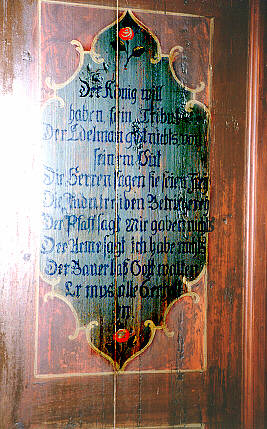 Der König will
haben sein Tribut
Der Edelman git nichts von
seinem Gut
Die Herren sagen sie seien
Die
Der Pfaff sagt Mir gaben nichts
Der Arme sagt ich habe nichts
Der Bauer Gott
Er mus alle